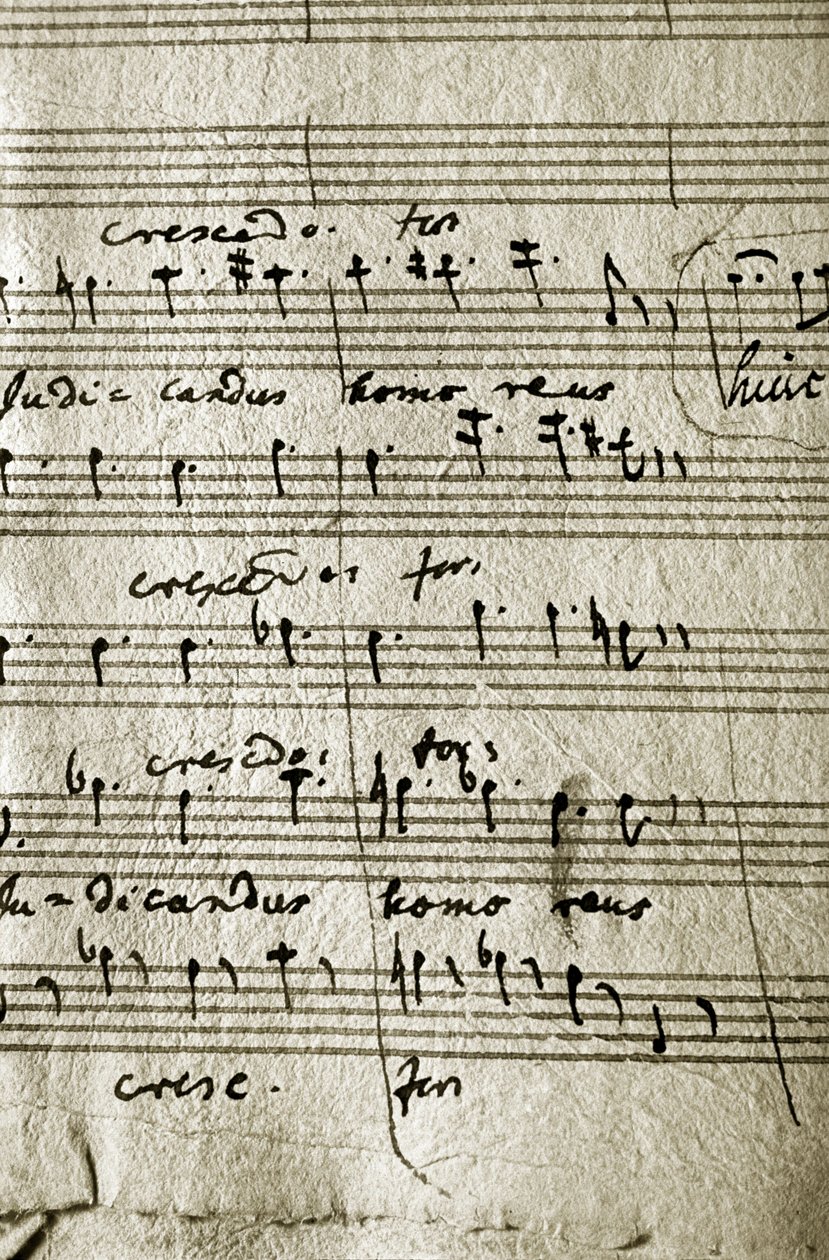 crescendo. for
Judi= candus homo reus
huic
crescendo: for:
crescdo: for:
Ju=dicandus homo reus
cresc. for